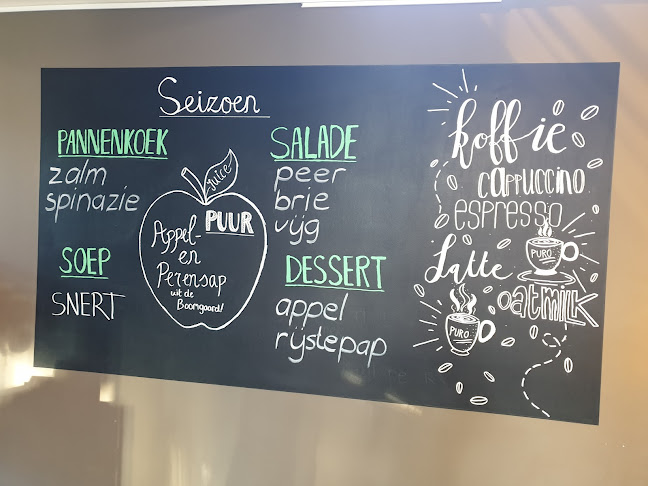 Seizoen
PANNENKOEK
zalm
spinazie
SOEP
SNERT
Juice
PUUR
Appel-
en
Perensap
uit de
Boomgaard!
SALADE
peer
brie
vijg
DESSERT
appel
rijstepap
koffie
cappuccino
espresso
Latte
PURO
OATMILK
PURO